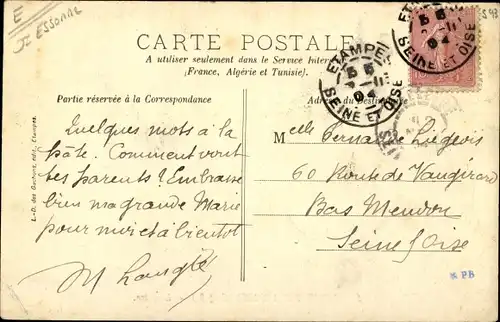 E
Essonne
CARTE POSTALE
A utiliser seulement dans le Service Inter
(France, Algérie et Tunisie).
ETAMPES
SEINE ET OISE
04
SEINE ET OISE
04
Partie réservée à la Correspondance
L.-D. des Etampes
Quelques mots à la
hâte. Comment vont
tes parents? Embrasse
bien ma grande Marie
pour moi et à bientôt
M
Melle Fernande Liégeois
60 Route de Vaugirard
Bas Meudon
Seine & Oise
* PB